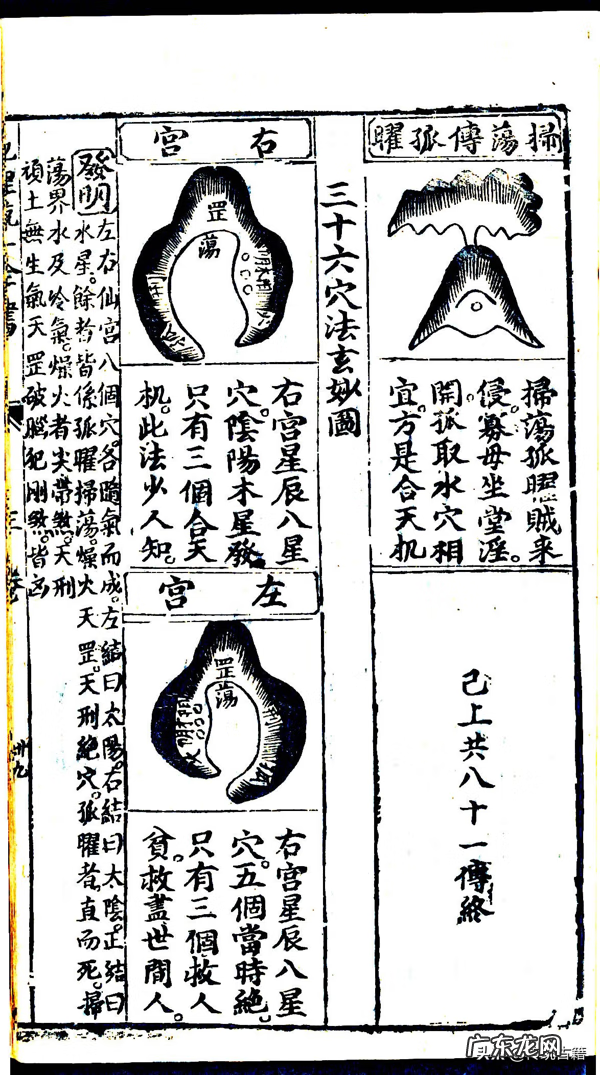 掃蕩傳孤曜
掃蕩孤曜賊來
侵寡母坐堂淫
開孤取水穴相
宜方是合天机
已上共八十一傳終
三十六穴法玄妙圖
右宮
罡
蕩
右宮星辰八星
穴陰陽木星發
只有三個合天
机此法少人知
左宮
罡
蕩
右宮星辰八星
穴五個當時絕
只有三個救人
貧救盡世間人
發明
左右仙宮八個穴各隨氣而成左結曰太陽右結曰太陰正結曰
水星餘者皆係孤曜掃蕩燥火天罡天刑絕穴孤曜者直而死掃
蕩界水及冷氣燥火者尖帶煞天刑
頑土無生氣天罡破腦犯剛煞皆凶
卅九
广东龙网